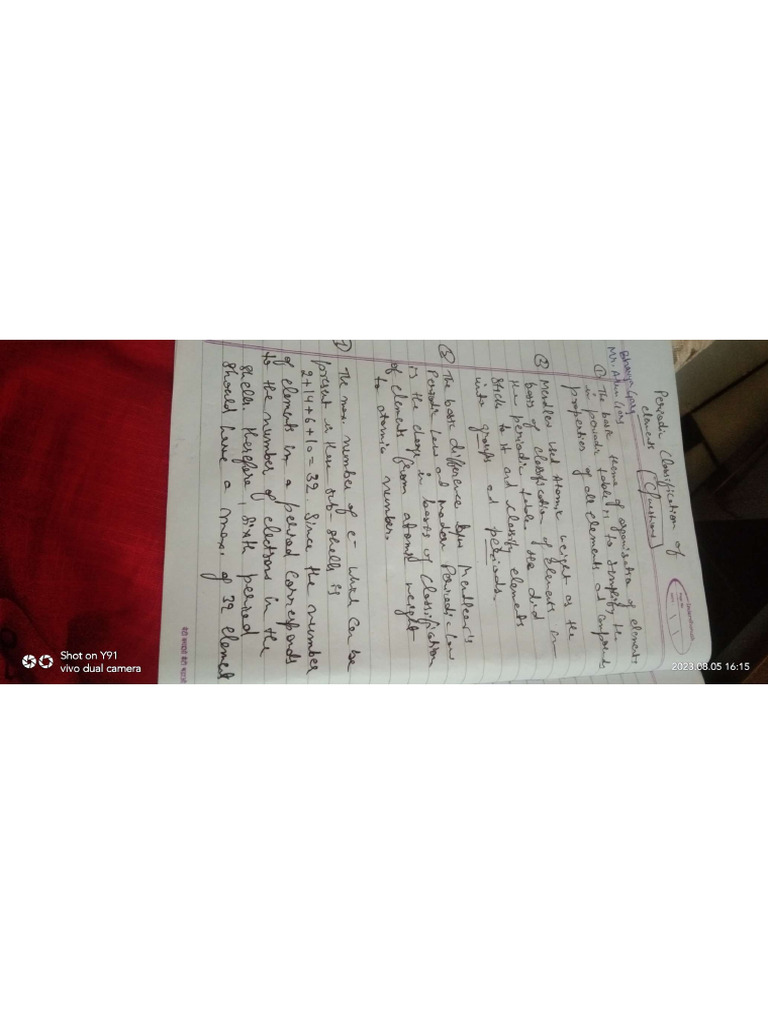 Periodic Classification of
elements (Questions)
Mr. Arun Garg
① The basic theme of organisation of elements
in periodic table is to simplify the
properties of all elements and compounds
② Mendleev used Atomic weight as the
basis of classification of elements in
the periodic table. He did
stick to it and classify elements
into groups and periods.
③ The basic difference b/w Mendleev's
Periodic law and Modern Periodic law
is the change in basis of classification
of elements from atomic weight
to atomic number.
The max. number of e- which can be
present in these sub-shells is
2+14+6+10=32. Since the number
of elements in a period corresponds
to the number of electrons in the
shells. therefore, sixth period
should have a max. of 32 element
Shot on Y91
vivo dual camera
2023.08.05 16:15